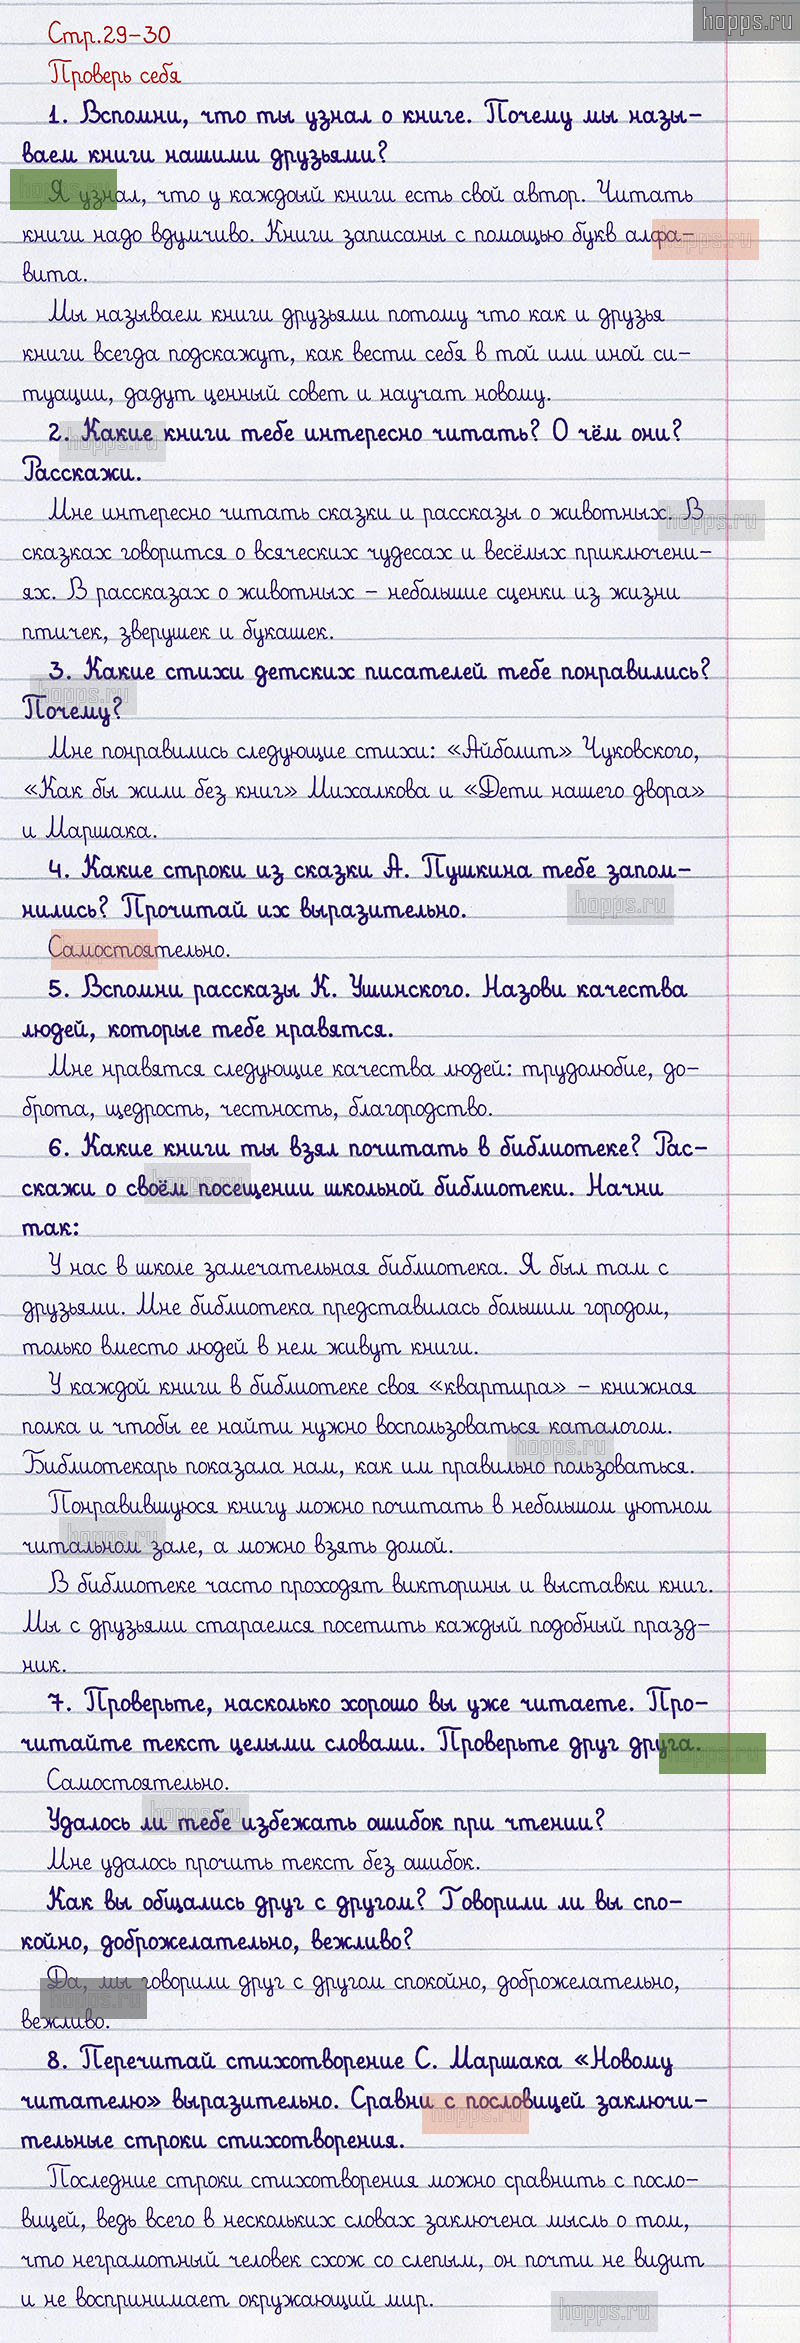 hopps.ru
Стр.29-30
Проверь себя
1. Вспомни, что ты узнал о книге. Почему мы назы-
ваем книги нашими друзьями?
Я узнал, что у каждоый книги есть свой автор. Читать
книги надо вдумчиво. Книги записаны с помощью букв алфа-
вита.
Мы называем книги друзьями потому что как и друзья
книги всегда подскажут, как вести себя в той или иной си-
туации, дадут ценный совет и научат новому.
2. Какие книги тебе интересно читать? О чём они?
Расскажи.
Мне интересно читать сказки и рассказы о животных. В
сказках говорится о всяческих чудесах и весёлых приключени-
ях. В рассказах о животных - небольшие сценки из жизни
птичек, зверушек и букашек.
3. Какие стихи детских писателей тебе понравились?
Почему?
Мне понравились следующие стихи: «Айболит» Чуковского,
«Как бы жили без книг» Михалкова и «Дети нашего двора»
и Маршака.
4. Какие строки из сказки А. Пушкина тебе запом-
нились? Прочитай их выразительно.
Самостоятельно.
5. Вспомни рассказы К. Ушинского. Назови качества
людей, которые тебе нравятся.
Мне нравятся следующие качества людей: трудолюбие, до-
брота, щедрость, честность, благородство.
6. Какие книги ты взял почитать в библиотеке? Рас-
скажи о своём посещении школьной библиотеки. Начни
так:
У нас в школе замечательная библиотека. Я был там с
друзьями. Мне библиотека представилась большим городом,
только вместо людей в нем живут книги.
У каждой книги в библиотеке своя «квартира» - книжная
полка и чтобы ее найти нужно воспользоваться каталогом.
Библиотекарь показала нам, как им правильно пользоваться.
Понравившуюся книгу можно почитать в небольшом уютном
читальном зале, а можно взять домой.
В библиотеке часто проходят викторины и выставки книг.
Мы с друзьями стараемся посетить каждый подобный празд-
ник.
7. Проверьте, насколько хорошо вы уже читаете. Про-
читайте текст целыми словами. Проверьте друг друга.
Самостоятельно.
Удалось ли тебе избежать ошибок при чтении?
Мне удалось прочить текст без ошибок.
Как вы общались друг с другом? Говорили ли вы спо-
койно, доброжелательно, вежливо?
Да, мы говорили друг с другом спокойно, доброжелательно,
вежливо.
8. Перечитай стихотворение С. Маршака «Новому
читателю» выразительно. Сравни с пословицей заключи-
тельные строки стихотворения.
Последние строки стихотворения можно сравнить с посло-
вицей, ведь всего в нескольких словах заключена мысль о том,
что неграмотный человек схож со слепым, он почти не видит
и не воспринимает окружающий мир.
hopps.ru